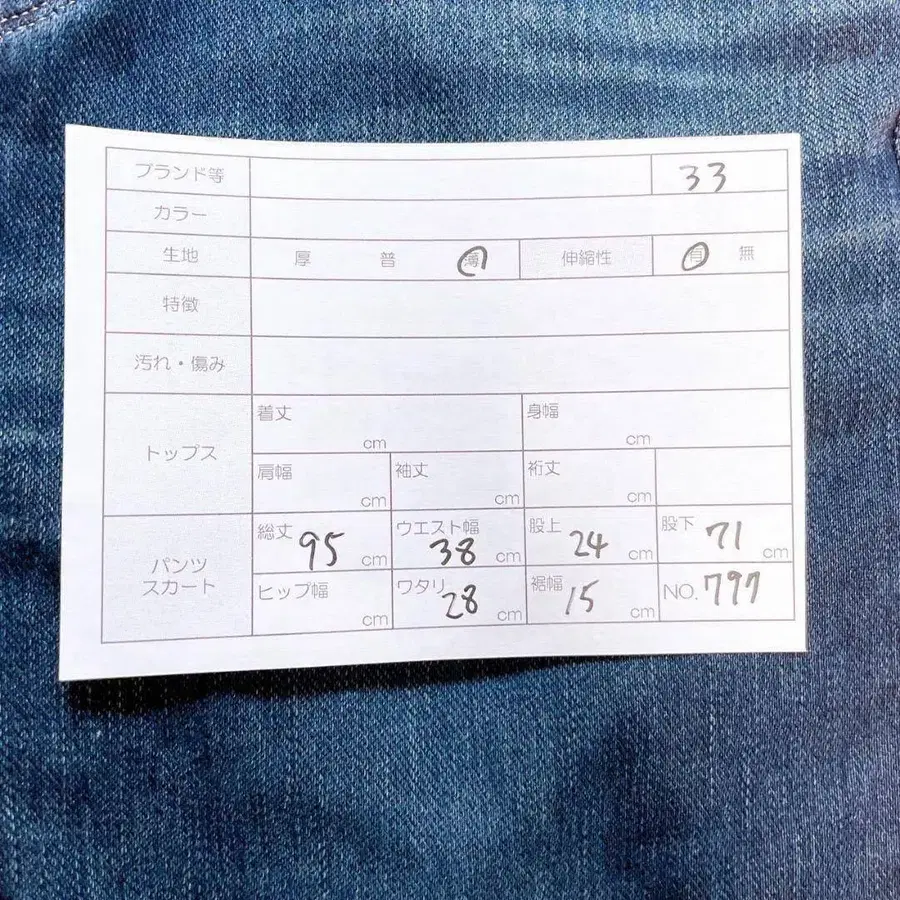 ブランド等 33
カラー
生地 厚 普 薄 伸縮性 有 無
特徴
汚れ・傷み
トップス
着丈 cm 身幅 cm
肩幅 cm 袖丈 cm 裄丈 cm
パンツ
スカート
総丈 95 cm ウエスト幅 38 cm 股上 24 cm 股下 71 cm
ヒップ幅 cm ワタリ 28 cm 裾幅 15 cm NO. 797